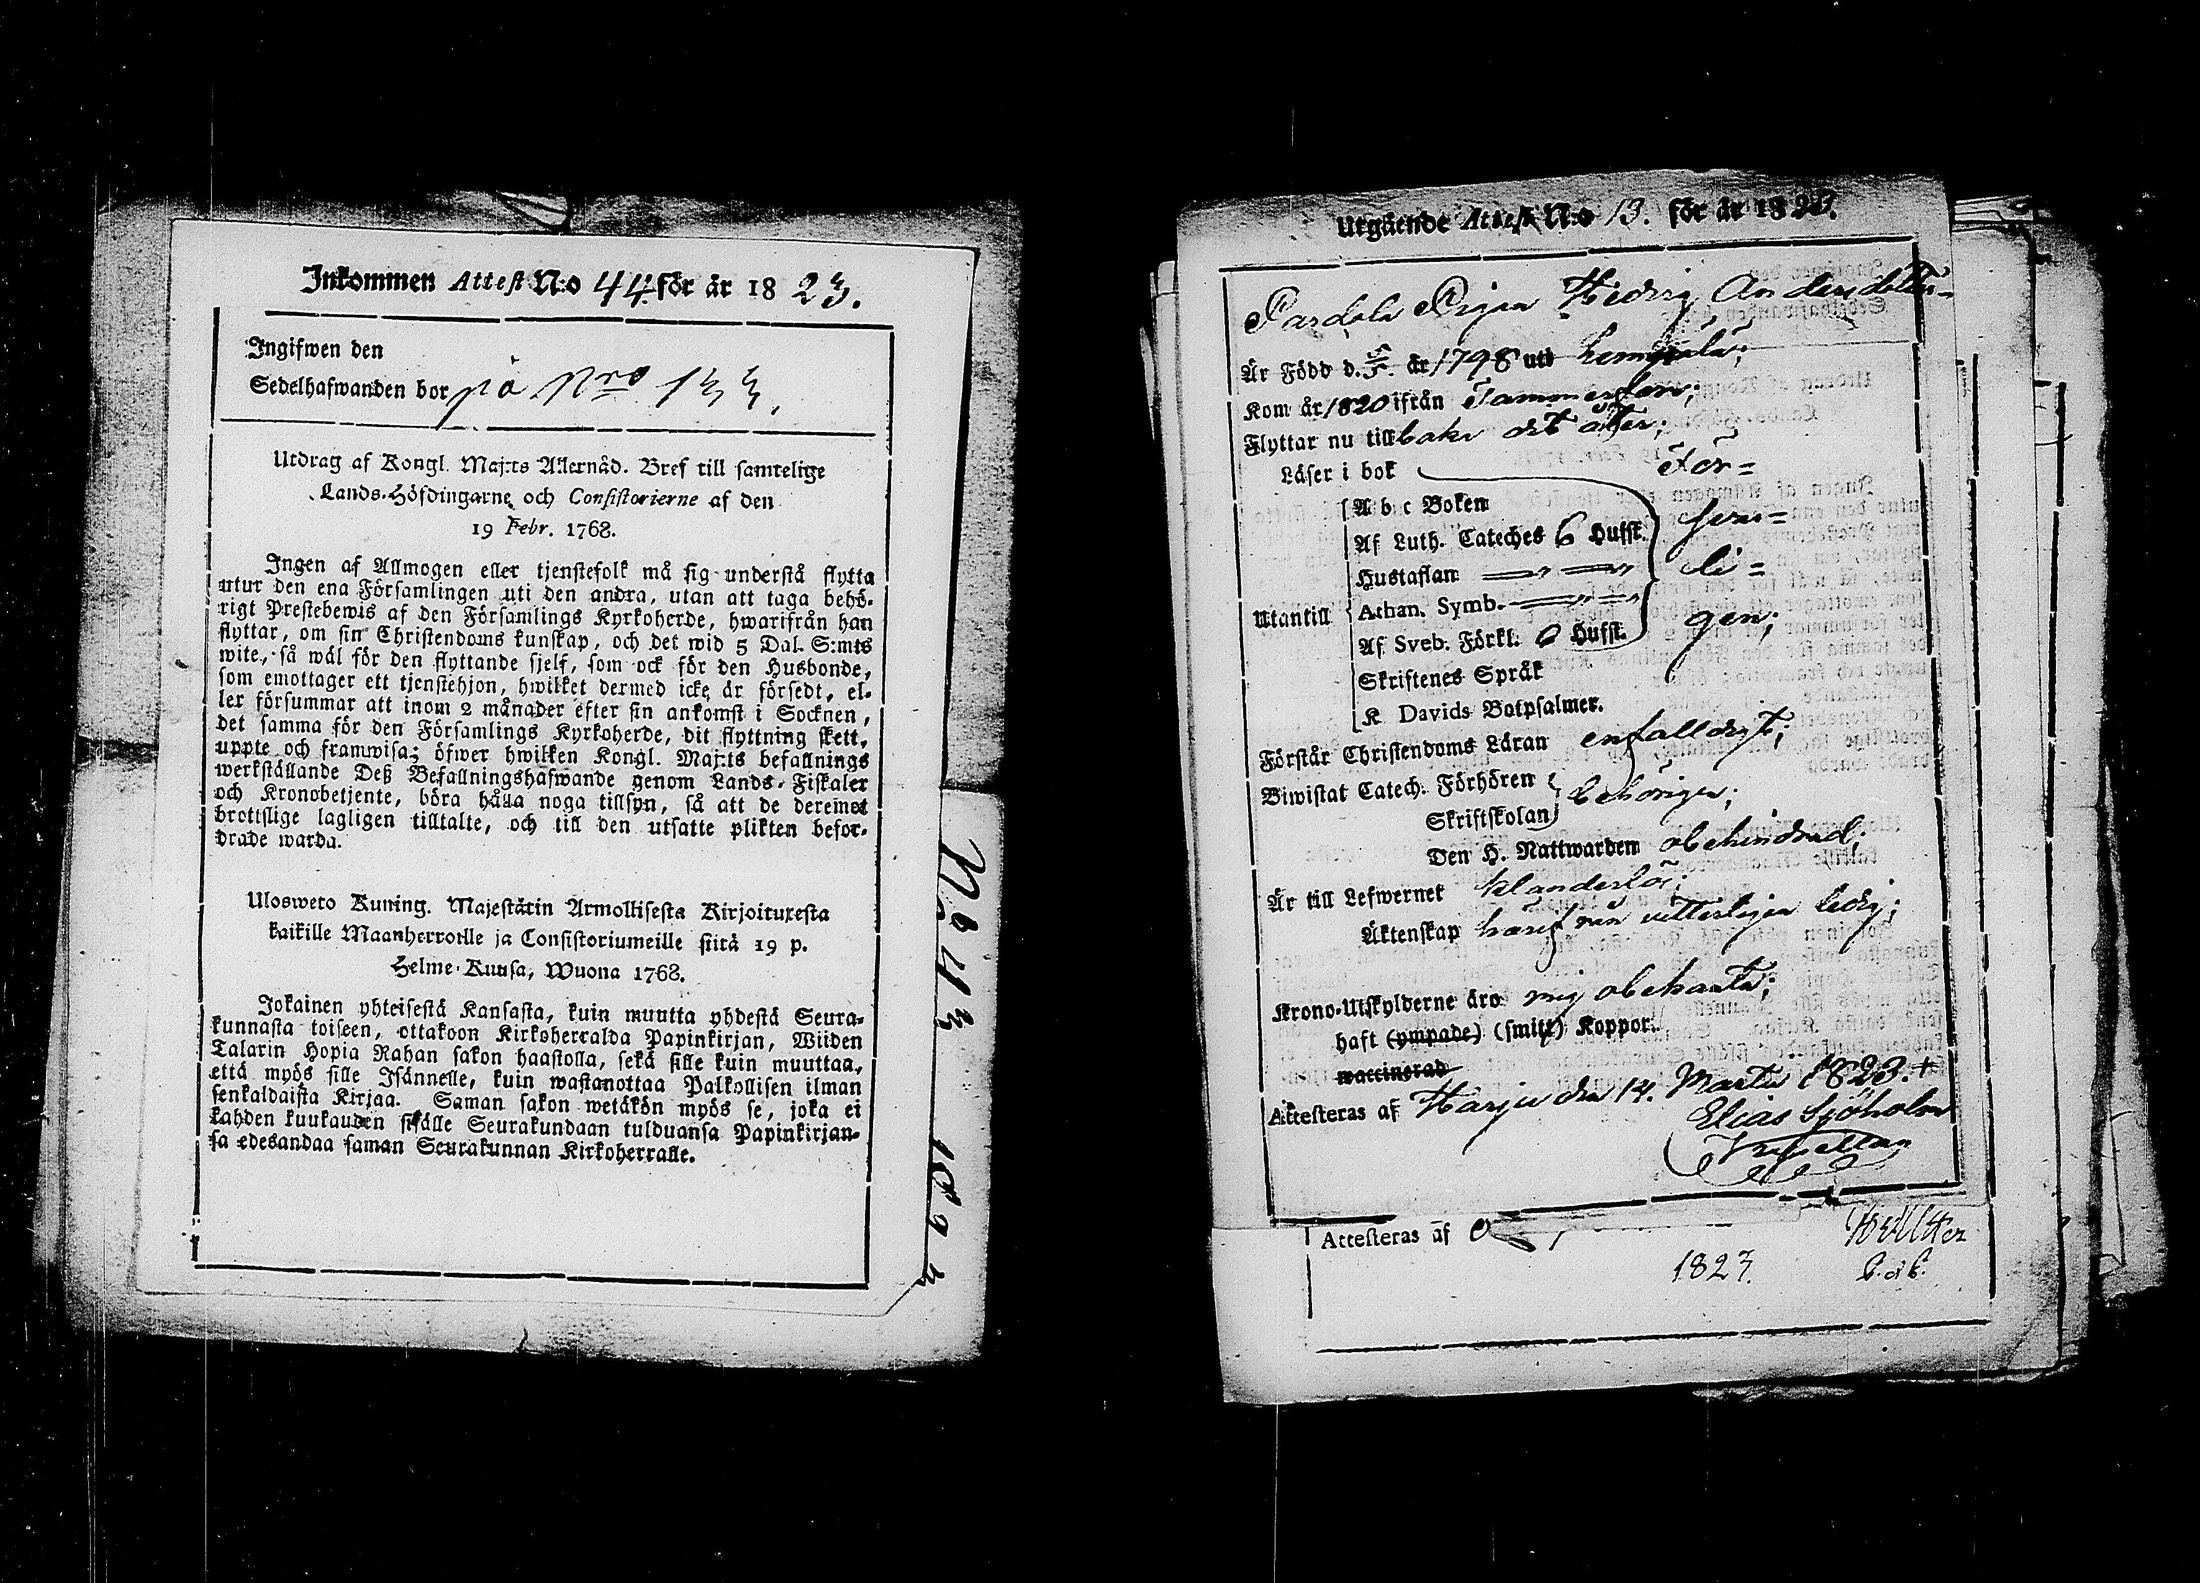 Inkommen Attest N:o 44. för år 1823.
Ingifwen den
Sedelhafwanden bor på Nro 133.
Utdrag af Kongl. Maj:ts Allernåd. Bref till samtelige
Lands-Höfdingarne och Consistorierne af den
19 Febr. 1768.
Ingen af Allmogen eller tjenstefolk må sig understå flytta
utur den ena Församlingen uti den andra, utan att taga behö-
rigt Prestebewis af den Församlings Kyrkoherde, hwarifrån han
flyttar, om sin Christendoms kunskap, och det wid 5 Dal. S:mts
wite, så wäl för den flyttande sjelf, som ock för den Husbonde,
som emottager ett tjenstehjon, hwilket dermed icke är försedt, el-
ler försummar att inom 2 månader efter sin ankomst i Socknen,
det samma för den Församlings Kyrkoherde, dit flyttning skett,
uppte och framwisa; öfwer hwilken Kongl. Maj:ts befallnings
werkställande Deß Befallningshafwande genom Lands-Fiskaler
och Kronobetjente, böra hålla noga tillsyn, så att de deremot
brottslige lagligen tilltalte, och till den utsatte plikten befor-
drade warda.
Ulosweto Kuning. Majestätin Armollisesta Kirjoituxesta
kaikille Maanherroille ja Consistoriumeille siitä 19 p.
Helme-Kuusa, Wuona 1768.
Jokainen yhteisestä Kansasta, kuin muutta yhdestä Seura-
kunnasta toiseen, ottakoon Kirkoherralda Papinkirjan, Wiiden
Talarin Hopia Rahan sakon haastolla, sekä sille kuin muuttaa,
että myös sille Isännelle, kuin wastanottaa Palkollisen ilman
senkaldaista Kirjaa. Saman sakon wetäkön myös se, joka ei
kahden kuukauden sisälle Seurakundaan tulduansa Papinkirjan-
sa edesandaa saman Seurakunnan Kirkoherralle.
Utgående Attest N:o 13. för år 1823.
Pardala Pigan Hedvig Andersdotter
Är Född d. 5/5. år 1798 uti Lempälä;
Kom år 1820 ifrån Tammerfors;
Flyttar nu tillbaka dit åter;
Läser i bok För=
A b c Boken
Af Luth. Cateches 6 Hufst. sem=
Hustaflan li=
Utantill Athan. Symb.
Af Sveb. Förkl. 0 Hufst. gen;
Skriftenes Språk
K Davids Botpsalmer.
Förstår Christendoms Läran enfalldigt;
Biwistat Catech. Förhören behörigen;
Skriftskolan
Den H. Nattwarden obehindrad;
Är till Lefwernet klanderlös;
Äktenskap härifrån vitterligen ledig;
Krono-Utskylderne äro mig obekanta;
haft (ympade) (smitt) Koppor.
waccinerad
Attesteras af Harju den 14. Martii 1823.
Elias Sjöholm
Capellan
Attesteras af
1823.